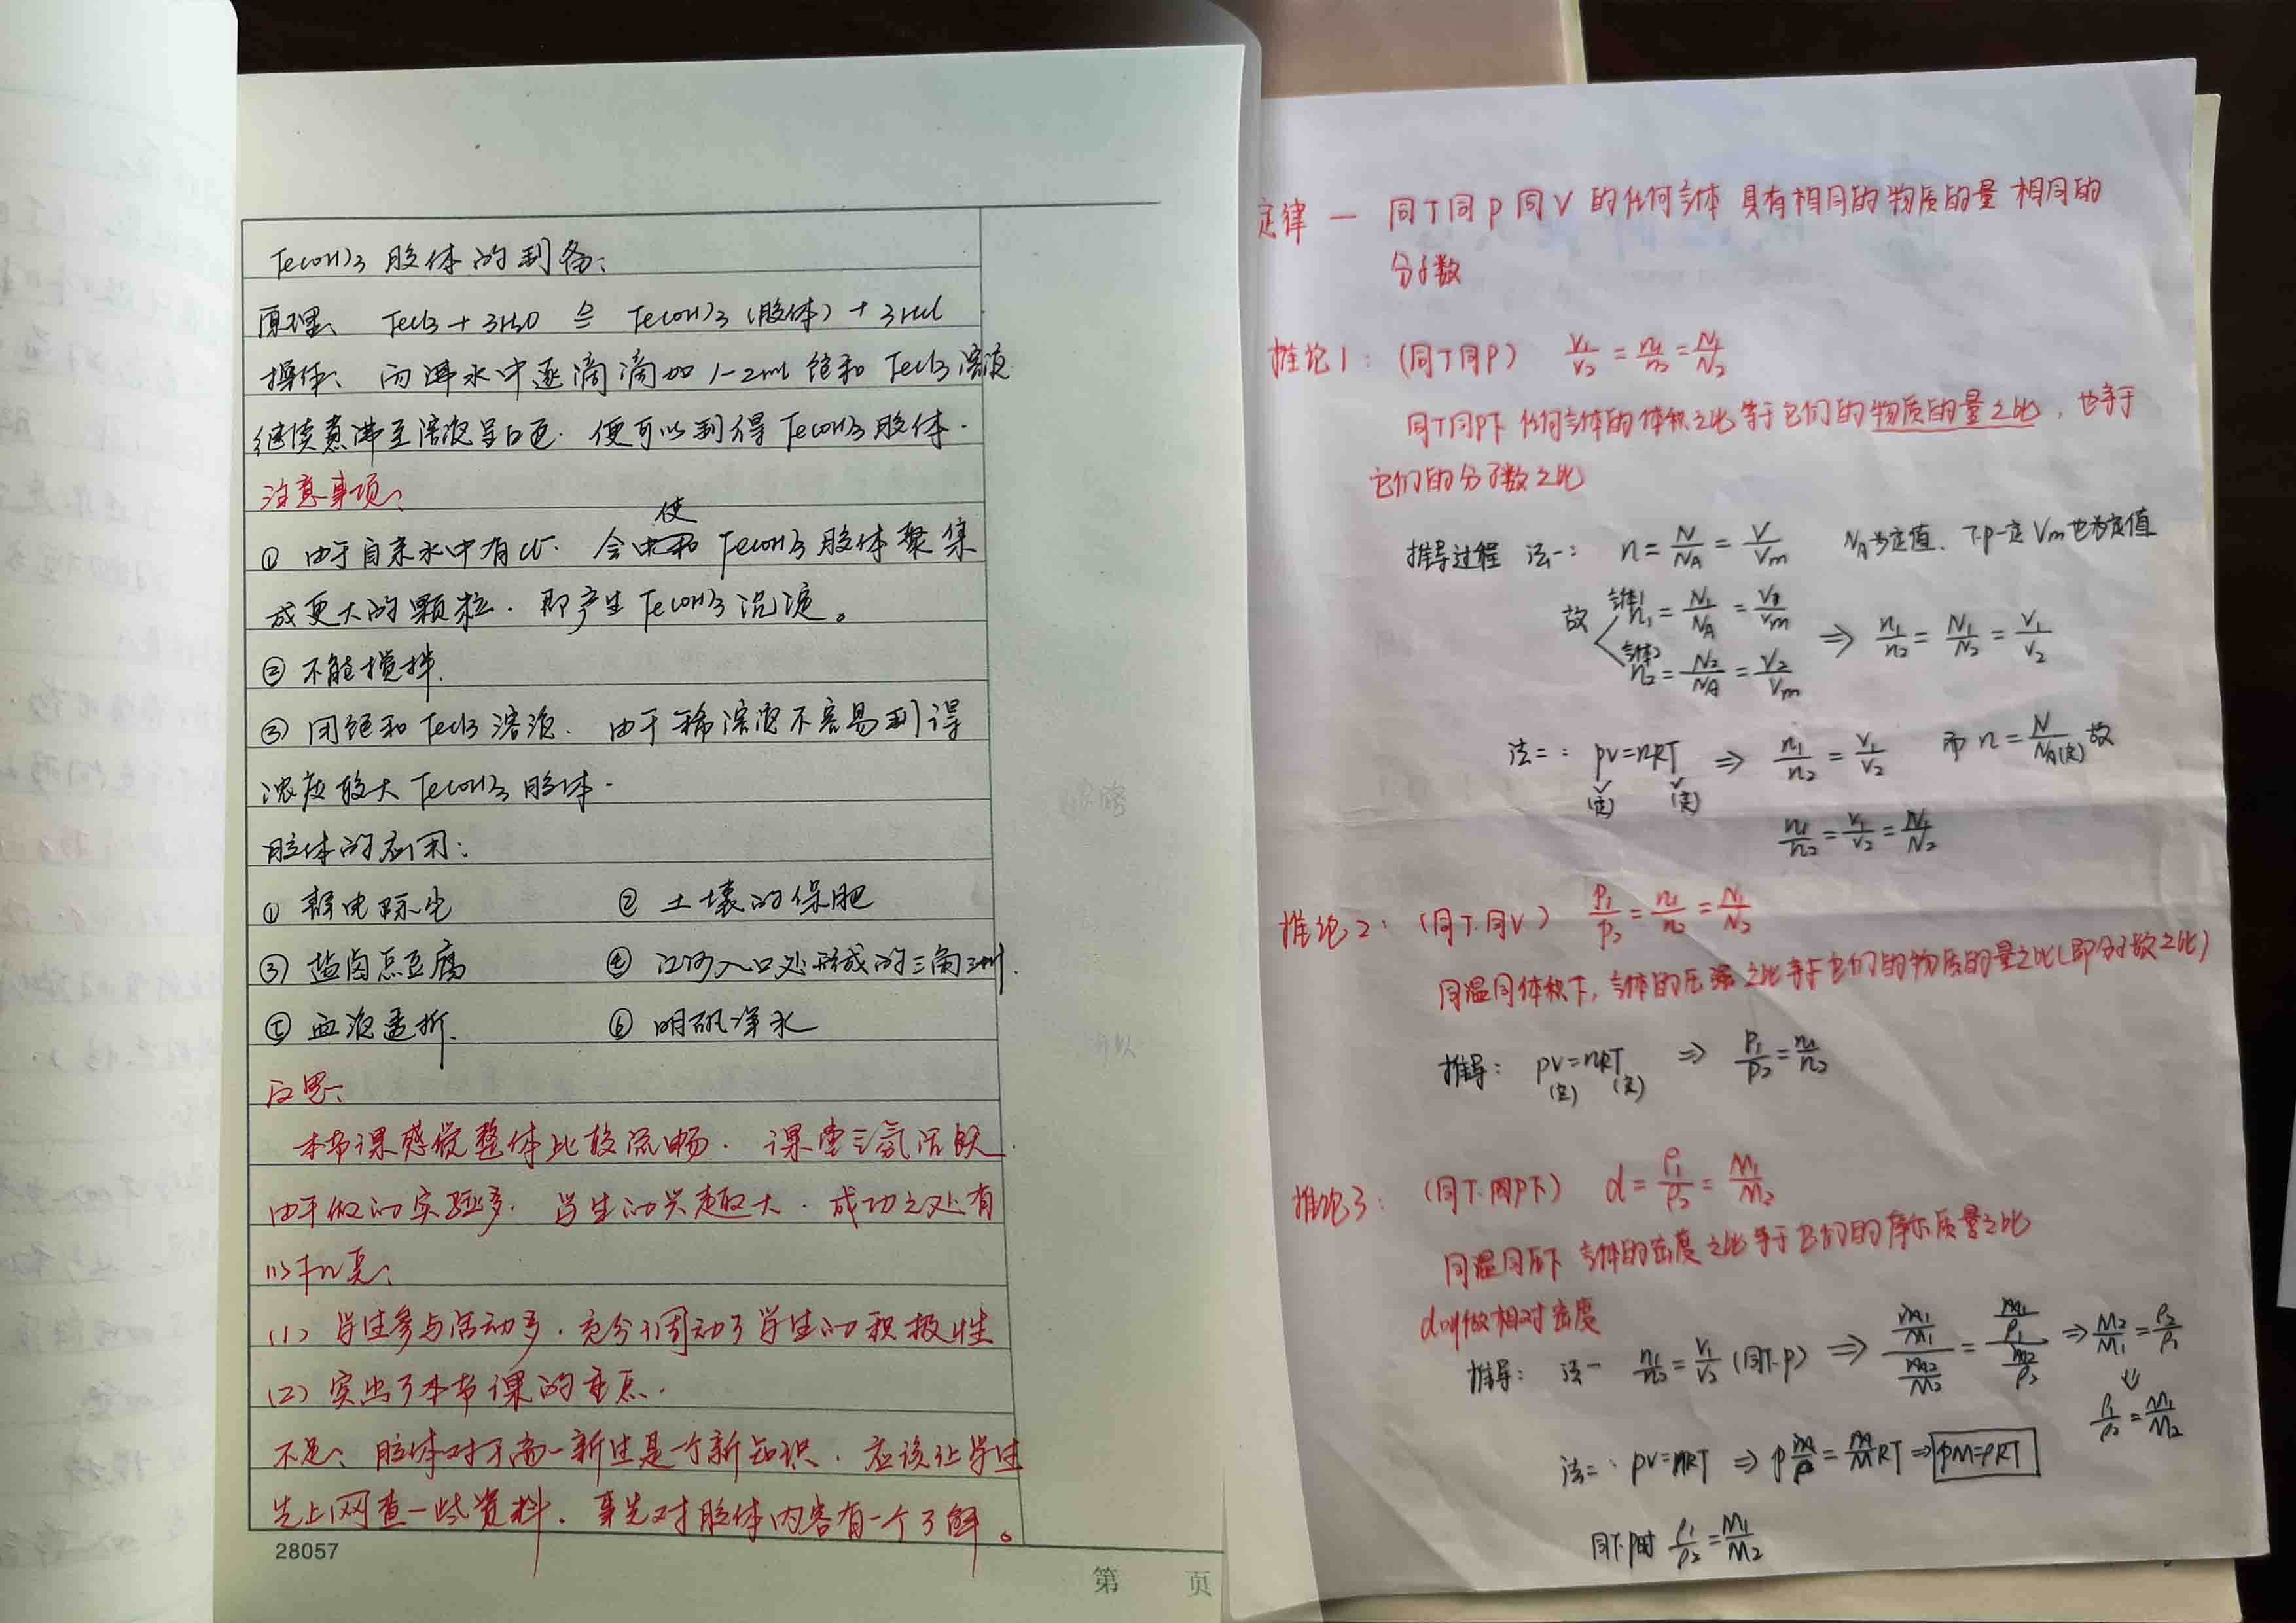 Fe(OH)3 胶体的制备:
原理: FeCl3 + 3H2O ≜ Fe(OH)3 (胶体) + 3HCl
操作: 向沸水中逐滴滴加 1-2ml 饱和 FeCl3 溶液
继续煮沸至溶液呈 色. 便可以制得 Fe(OH)3 胶体.
注意事项:
使
① 由于自来水中有 Cl⁻. 会 Fe(OH)3 胶体聚集
成更大的颗粒. 即产生 Fe(OH)3 沉淀。
② 不能搅拌.
③ 用饱和 FeCl3 溶液. 由于稀溶液不容易制得
浓度较大 Fe(OH)3 胶体.
胶体的应用:
① 静电除尘 ② 土壤的保肥
③ 盐卤点豆腐 ④ 江河入口处形成的三角洲.
⑤ 血液透析. ⑥ 明矾净水
反思:
本节课感觉整体比较流畅. 课堂气氛活跃.
由于做的实验多. 学生的兴趣大. 成功之处有
以下几点:
(1) 学生参与活动多. 充分调动了学生的积极性
(2) 突出了本节课的重点.
不足: 胶体对于高一新生是一个新知识. 应该让学生
先上网查一些资料. 事先对胶体内容有一个了解。
28057
第 页
定律 一 同T同P同V 的任何气体 具有相同的物质的量 相同的
分子数
推论1: (同T同P) V₁/V₂ = n₁/n₂ = N₁/N₂
同T同P下 任何气体的体积之比等于它们的物质的量之比, 也等于
它们的分子数之比
推导过程 法一: n = N/NA = V/Vm NA为定值. T.P一定 Vm也为定值
故 气体1 n₁ = N₁/NA = V₁/Vm
气体2 n₂ = N₂/NA = V₂/Vm ⇒ n₁/n₂ = N₁/N₂ = V₁/V₂
法二: PV=nRT ⇒ n₁/n₂ = V₁/V₂ 而 n = N/NA(定) 故
(定) (定)
n₁/n₂ = V₁/V₂ = N₁/N₂
推论2: (同T.同V) P₁/P₂ = n₁/n₂ = N₁/N₂
同温同体积下, 气体的压强之比等于它们的物质的量之比(即分子数之比)
推导: PV=nRT ⇒ P₁/P₂ = n₁/n₂
(定) (定)
推论3: (同T.同P下) d = ρ₁/ρ₂ = M₁/M₂
同温同压下 气体的密度之比等于它们的摩尔质量之比
d叫做相对密度
推导: 法一 n₁/n₂ = V₁/V₂ (同T.P) ⇒ (m₁/M₁)/(m₂/M₂) = (m₁/ρ₁)/(m₂/ρ₂) ⇒ M₂/M₁ = ρ₂/ρ₁
⇓
ρ₁/ρ₂ = M₁/M₂
法二: PV=nRT ⇒ P m/ρ = m/M RT ⇒ PM=ρRT
同T.P时 ρ₁/ρ₂ = M₁/M₂